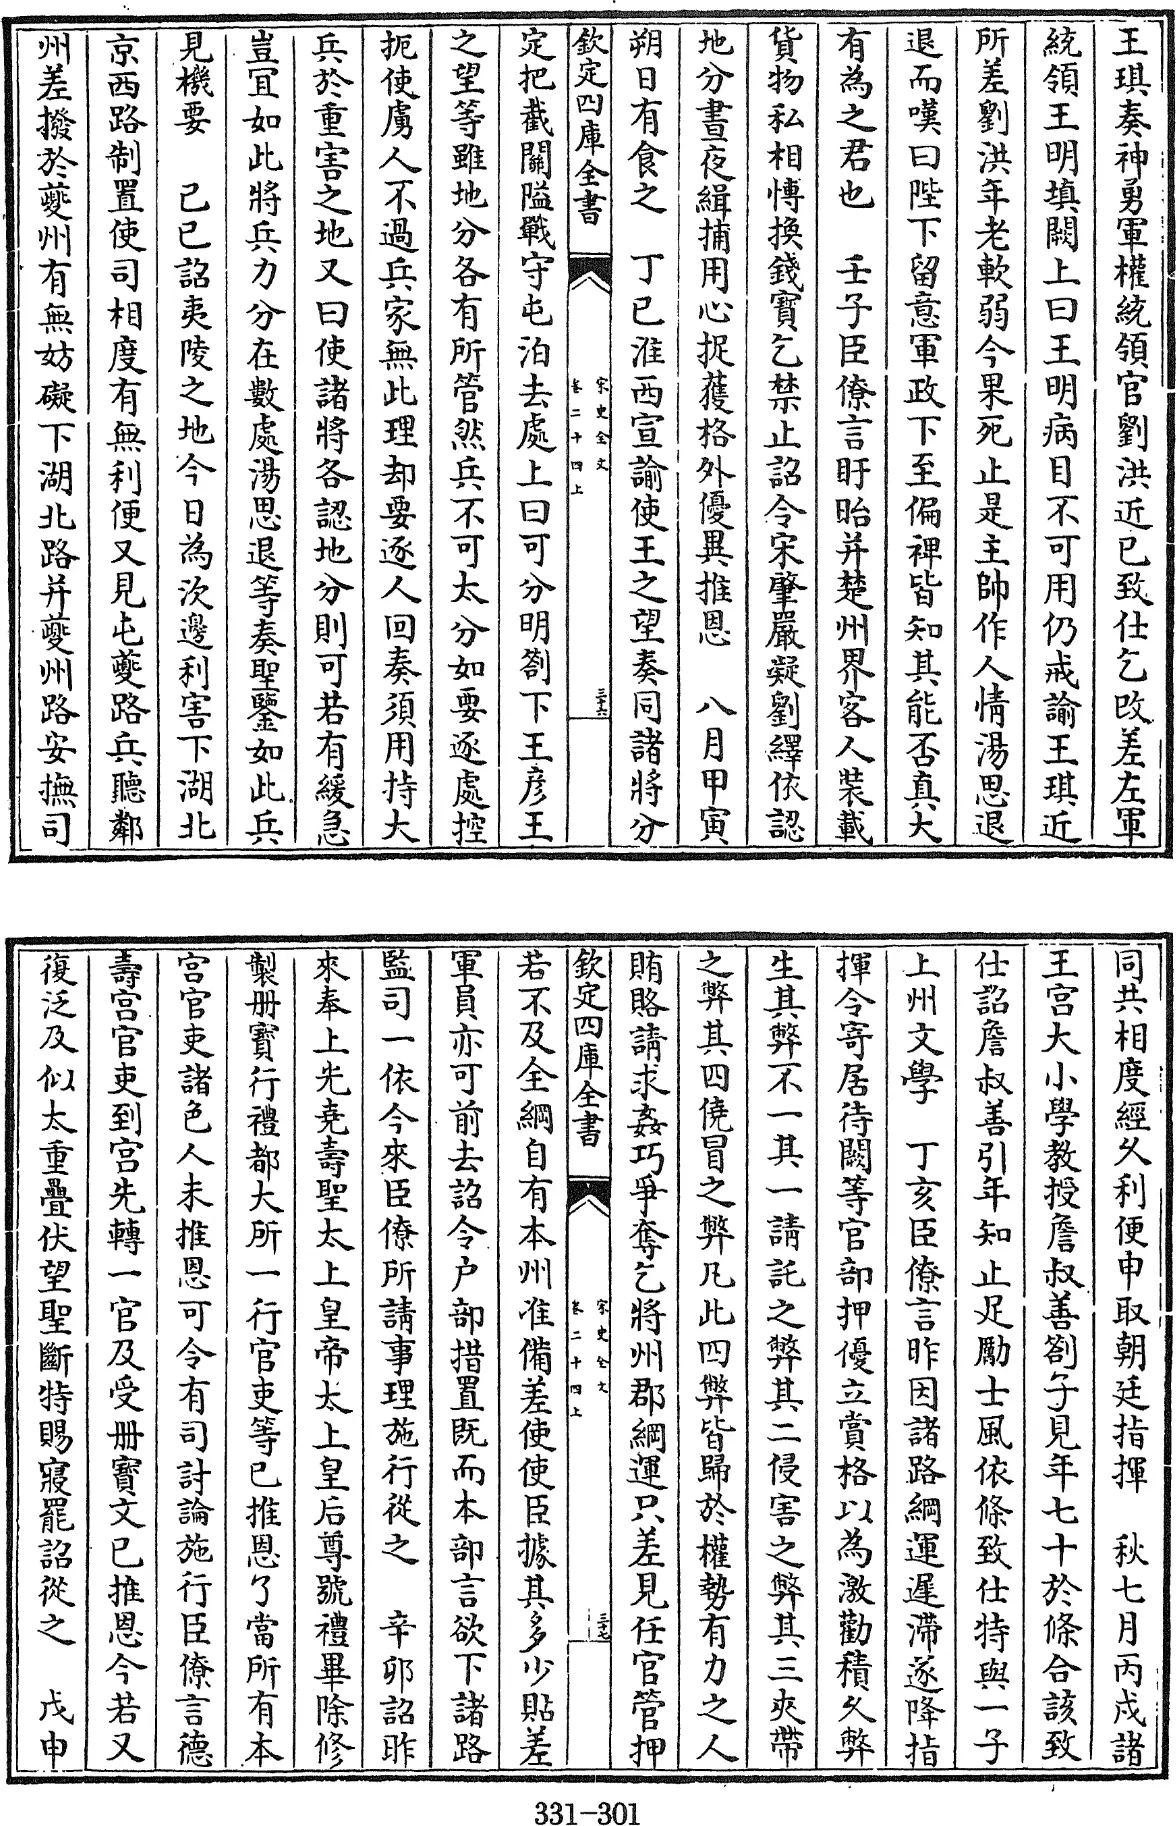 王琪奏神勇軍權統領官劉洪近已致仕乞改差左軍
統領王明填闕上曰王明病目不可用仍戒諭王琪近
所差劉洪年老軟弱今果死止是主帥作人情湯思退
退而嘆曰陛下留意軍政下至偏裨皆知其能否真大
有為之君也　壬子臣僚言盱眙并楚州界客人裝載
貨物私相慱換錢寶乞禁止詔令宋肇嚴疑劉繹依認
地分晝夜緝捕用心捉獲格外優異推恩　八月甲寅
朔日有食之　丁巳淮西宣諭使王之望奏同諸將分
欽定四庫全書
宋史全文
卷二十四上
三十六
定把截關隘戰守屯泊去處上曰可分明劄下王彥王
之望等雖地分各有所管然兵不可太分如要逐處控
扼使虜人不過兵家無此理却要逐人回奏須用持大
兵於重害之地又曰使諸將各認地分則可若有緩急
豈宜如此將兵力分在數處湯思退等奏聖鑒如此兵
見機要　己巳詔夷陵之地今日為次邊利害下湖北
京西路制置使司相度有無利便又見屯夔路兵聽鄰
州差撥於夔州有無妨礙下湖北路并夔州路安撫司
同共相度經久利便申取朝廷指揮　秋七月丙戍諸
王宮大小學教授詹叔善劄子見年七十於條合該致
仕詔詹叔善引年知止足勵士風依條致仕特與一子
上州文學　丁亥臣僚言昨因諸路綱運遲滯遂降指
揮令寄居待闕等官部押優立賞格以為激勸積久弊
生其弊不一其一請託之弊其二侵害之弊其三夾帶
之弊其四僥冒之弊凡此四弊皆歸於權勢有力之人
賄賂請求姦巧爭奪乞將州郡綱運只差見任官管押
欽定四庫全書
宋史全文
卷二十四上
三十七
若不及全綱自有本州准備差使使臣據其多少貼差
軍員亦可前去詔令户部措置既而本部言欲下諸路
監司一依今來臣僚所請事理施行從之　辛卯詔昨
來奉上光堯壽聖太上皇帝太上皇后尊號禮畢除修
製册寳行禮都大所一行官吏等已推恩了當所有本
宮官吏諸色人未推恩可令有司討論施行臣僚言德
壽宮官吏到宮先轉一官及受册寳文已推恩今若又
復泛及似太重疊伏望聖斷特賜寢罷詔從之　戊申
331-301